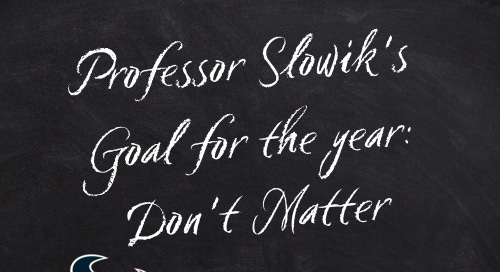 Professor Slowik's
Goal for the year:
Don't Matter